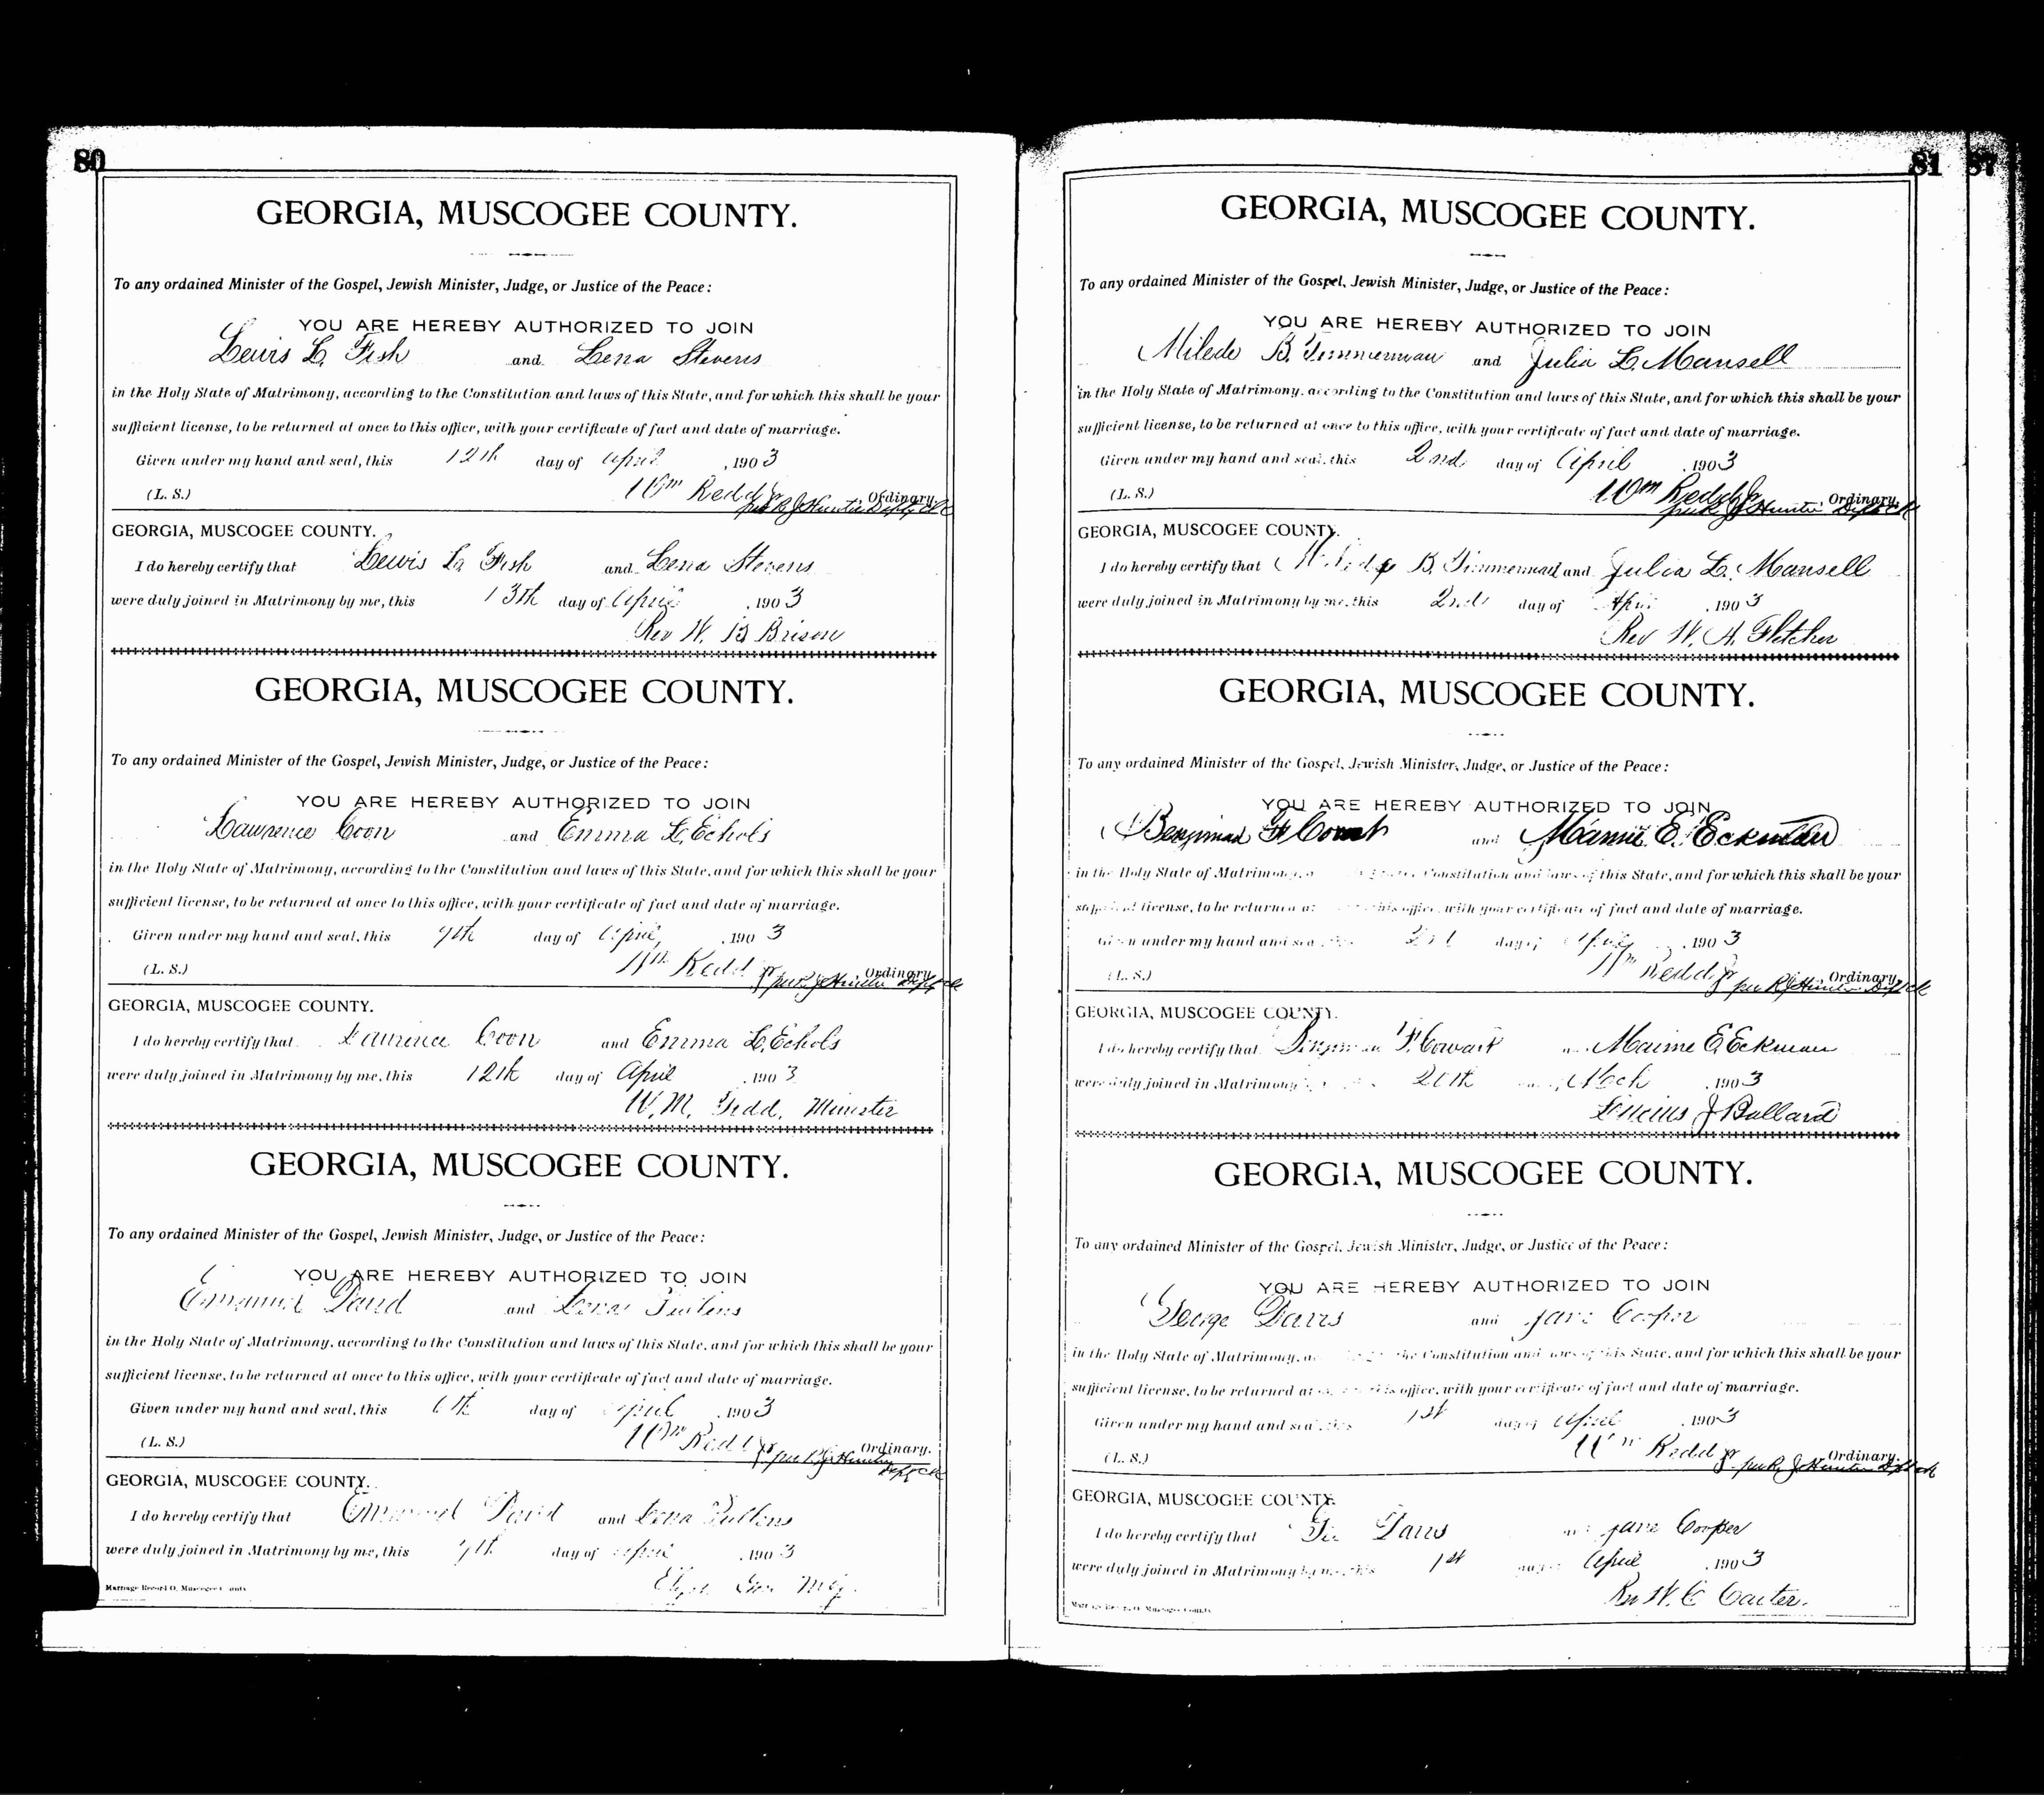 80
GEORGIA, MUSCOGEE COUNTY.
To any ordained Minister of the Gospel, Jewish Minister, Judge, or Justice of the Peace:
YOU ARE HEREBY AUTHORIZED TO JOIN
Lewis L. Fish and Lena Stevens
in the Holy State of Matrimony, according to the Constitution and laws of this State, and for which this shall be your
sufficient license, to be returned at once to this office, with your certificate of fact and date of marriage.
Given under my hand and seal, this 12th day of April, 1903
(L. S.) Wm Redd Jr Ordinary.
per R J Hunter Dept Ck
GEORGIA, MUSCOGEE COUNTY.
I do hereby certify that Lewis L. Fish and Lena Stevens
were duly joined in Matrimony by me, this 13th day of April, 1903
Rev W. B Brison
GEORGIA, MUSCOGEE COUNTY.
To any ordained Minister of the Gospel, Jewish Minister, Judge, or Justice of the Peace:
YOU ARE HEREBY AUTHORIZED TO JOIN
Lawrence Coon and Emma L. Echols
in the Holy State of Matrimony, according to the Constitution and laws of this State, and for which this shall be your
sufficient license, to be returned at once to this office, with your certificate of fact and date of marriage.
Given under my hand and seal, this day of April, 1903
(L. S.) Wm Redd Jr Ordinary.
per R J Hunter Dept Ck
GEORGIA, MUSCOGEE COUNTY.
I do hereby certify that Laurence Coon and Emma L. Echols
were duly joined in Matrimony by me, this 12th day of April, 1903
W. M. Minister
GEORGIA, MUSCOGEE COUNTY.
To any ordained Minister of the Gospel, Jewish Minister, Judge, or Justice of the Peace:
YOU ARE HEREBY AUTHORIZED TO JOIN
Emanuel David and Lena
in the Holy State of Matrimony, according to the Constitution and laws of this State, and for which this shall be your
sufficient license, to be returned at once to this office, with your certificate of fact and date of marriage.
Given under my hand and seal, this 6th day of April, 1903
(L. S.) Wm Redd Jr Ordinary.
per R J Hunter
Dept Ck
GEORGIA, MUSCOGEE COUNTY.
I do hereby certify that Emanuel David and Lena
were duly joined in Matrimony by me, this 7th day of April, 1903
Marriage Record O, Muscogee County
81 87
GEORGIA, MUSCOGEE COUNTY.
To any ordained Minister of the Gospel, Jewish Minister, Judge, or Justice of the Peace:
YOU ARE HEREBY AUTHORIZED TO JOIN
B. Timmerman and Julia L. Mansell
in the Holy State of Matrimony, according to the Constitution and laws of this State, and for which this shall be your
sufficient license, to be returned at once to this office, with your certificate of fact and date of marriage.
Given under my hand and seal, this 2nd day of April, 1903
(L. S.) Wm Redd Jr Ordinary.
per R J Hunter Dept Ck
GEORGIA, MUSCOGEE COUNTY.
I do hereby certify that B. Timmerman and Julia L. Mansell
were duly joined in Matrimony by me, this 2nd day of Apri, 1903
Rev W. A. Fletcher
GEORGIA, MUSCOGEE COUNTY.
To any ordained Minister of the Gospel, Jewish Minister, Judge, or Justice of the Peace:
YOU ARE HEREBY AUTHORIZED TO JOIN
Benjiman F Cowart and Mamie E. Eckman
in the Holy State of Matrimony, according to the Constitution and laws of this State, and for which this shall be your
sufficient license, to be returned at once to this office, with your certificate of fact and date of marriage.
Given under my hand and seal, this day of 1903
(L. S.) Wm Redd Jr Ordinary.
per R J Hunter Dept Ck
GEORGIA, MUSCOGEE COUNTY.
I do hereby certify that Benjiman F. Cowart and Mamie E. Eckman
were duly joined in Matrimony by me, this day of Mch, 1903
Lucius J Bullard
GEORGIA, MUSCOGEE COUNTY.
To any ordained Minister of the Gospel, Jewish Minister, Judge, or Justice of the Peace:
YOU ARE HEREBY AUTHORIZED TO JOIN
George Davis and Jane Cooper
in the Holy State of Matrimony, according to the Constitution and laws of this State, and for which this shall be your
sufficient license, to be returned at once to this office, with your certificate of fact and date of marriage.
Given under my hand and seal, this 1st day of April, 1903
(L. S.) Wm Redd Jr Ordinary.
per R J Hunter Dept Ck
GEORGIA, MUSCOGEE COUNTY.
I do hereby certify that Geo Davis and Jane Cooper
were duly joined in Matrimony by me, this 1st day of April, 1903
Rev W. C Carter.
Marriage Record O, Muscogee County